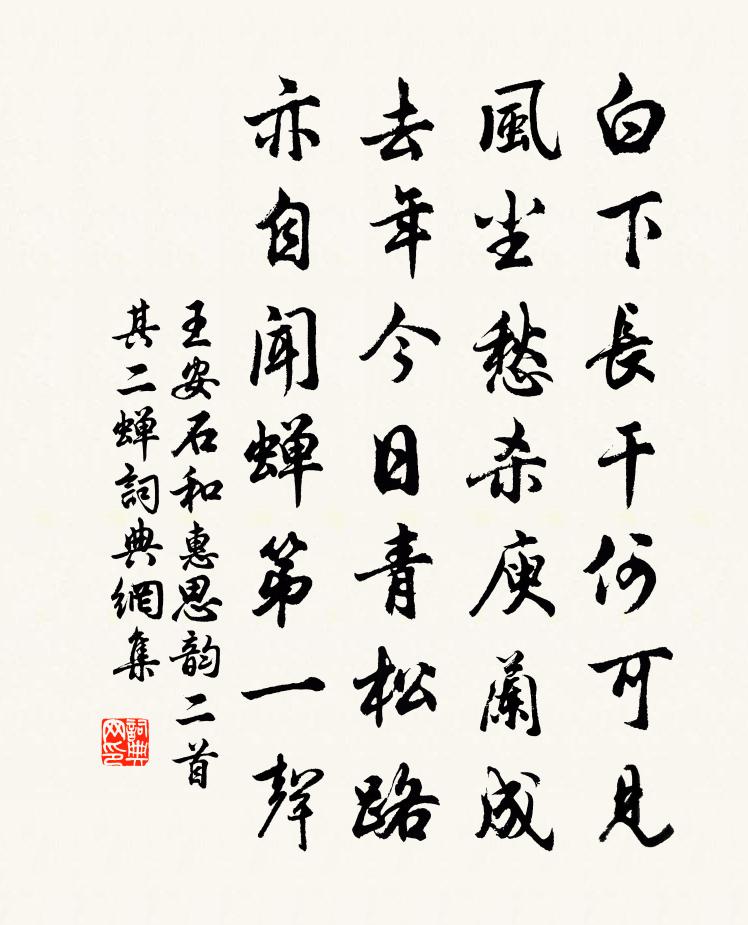 白下長干何可見
風尘愁杀庾蘭成
去年今日青松路
亦自闻蝉第一聲
王安石和惠思韵二首
其二蝉詞典網集
詞典网印